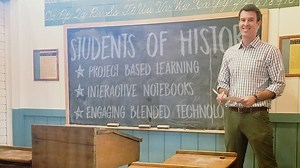 STUDENTS OF HISTORY
★ PROJECT BASED LEARNING
★ INTERACTIVE NOTEBOOKS
★ ENGAGING BLENDED